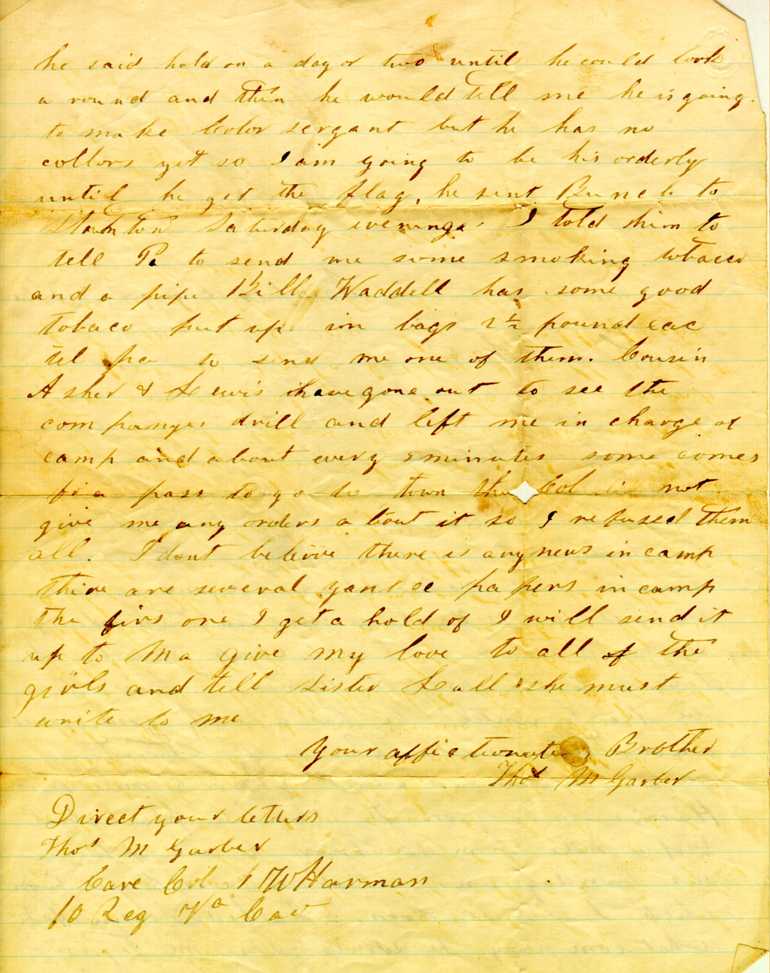 he said hold on a day or two until he could look
a round and then he would tell me he is going
to make Color sergant but he has no
collors yet so I am going to be his orderly
until he get the flag, he sent Bunch to
Stanton Saturday evening. I told him to
tell Pa to send me some smoking tobacco
and a pipe Bill Waddell has some good
tobaco put up in bags 2½ pound eac
tel pa to send me one of them. Cousin
Asher & Lewis have gone out to see the
companyes drill and left me in charge of
camp and about every 5 minutes some comes
for a pass to go to town the Col is not
give me any orders a bout it so I refused them
all. I dont beleive there is any news in camp
there are several yankee papers in camp
the firs one I get a hold of I will send it
up to Ma give my love to all of the
girls and tell sister Hall she must
write to me
Your affictionate Brother
Thos M Garber
Direct your letters
Thos M Garber
Care Col W Harman
10 Reg Va Cav